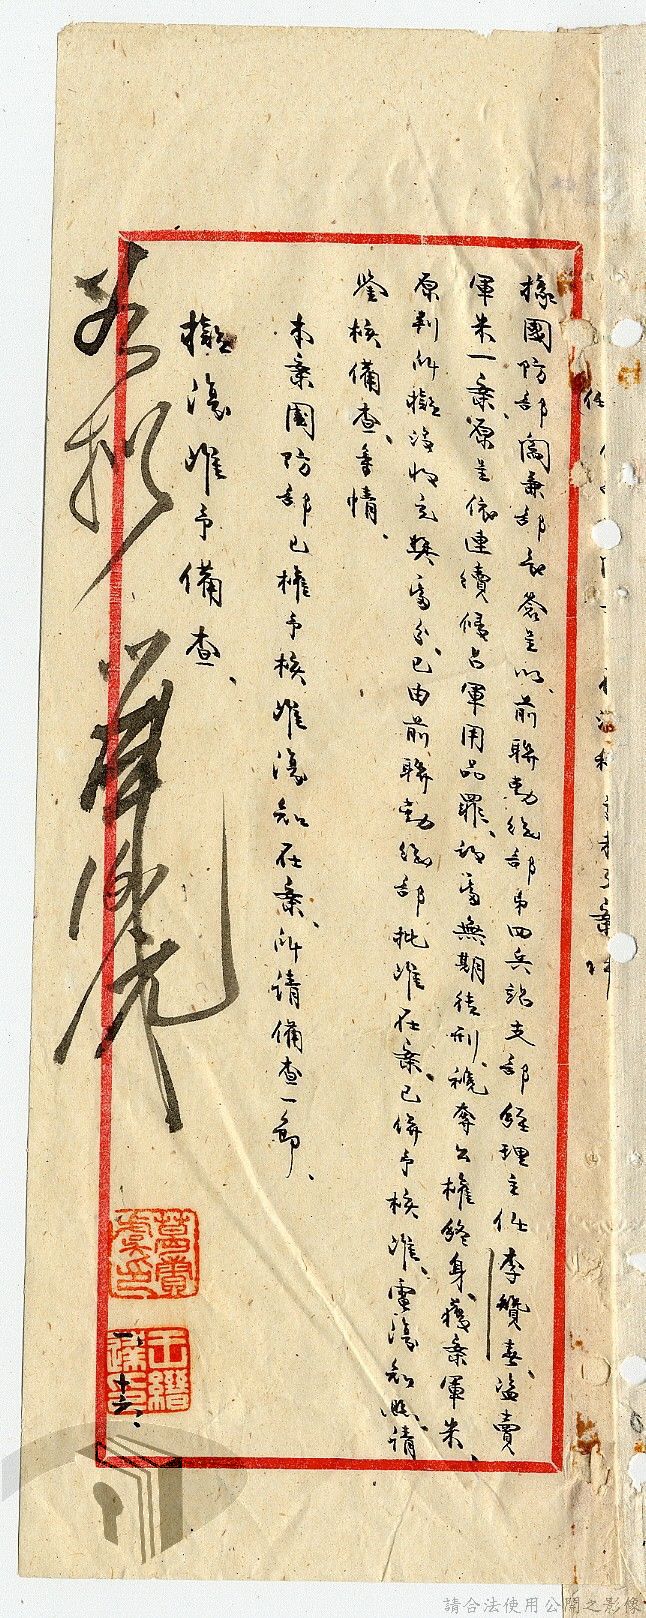 據國防部閻兼部長簽呈以、前聯勤總部第四兵站支部經理主任李贊春、盜賣
軍米一案、原呈依連續侵占軍用品罪、判處無期徒刑、褫奪公權終身、獲案軍米、
原判所擬沒收充獎處分、已由前聯勤總部批准在案、已併予核准、電復知照、請
鑒核備查、等情、
本案國防部已權予核准復知在案、所請備查一節、
擬復准予備查、
如擬
蔣中正
王縉
一、十六、
請合法使用公開之影像